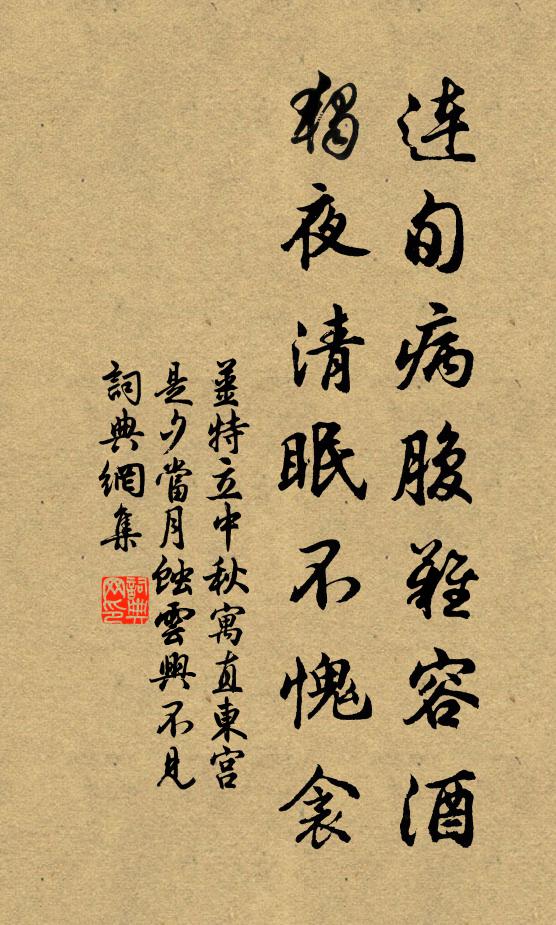 連旬病腹難容酒
獨夜清眠不愧衾
薑特立中秋寓直東宮
是夕當月蝕雲興不見
詞典網集
詞典
网印